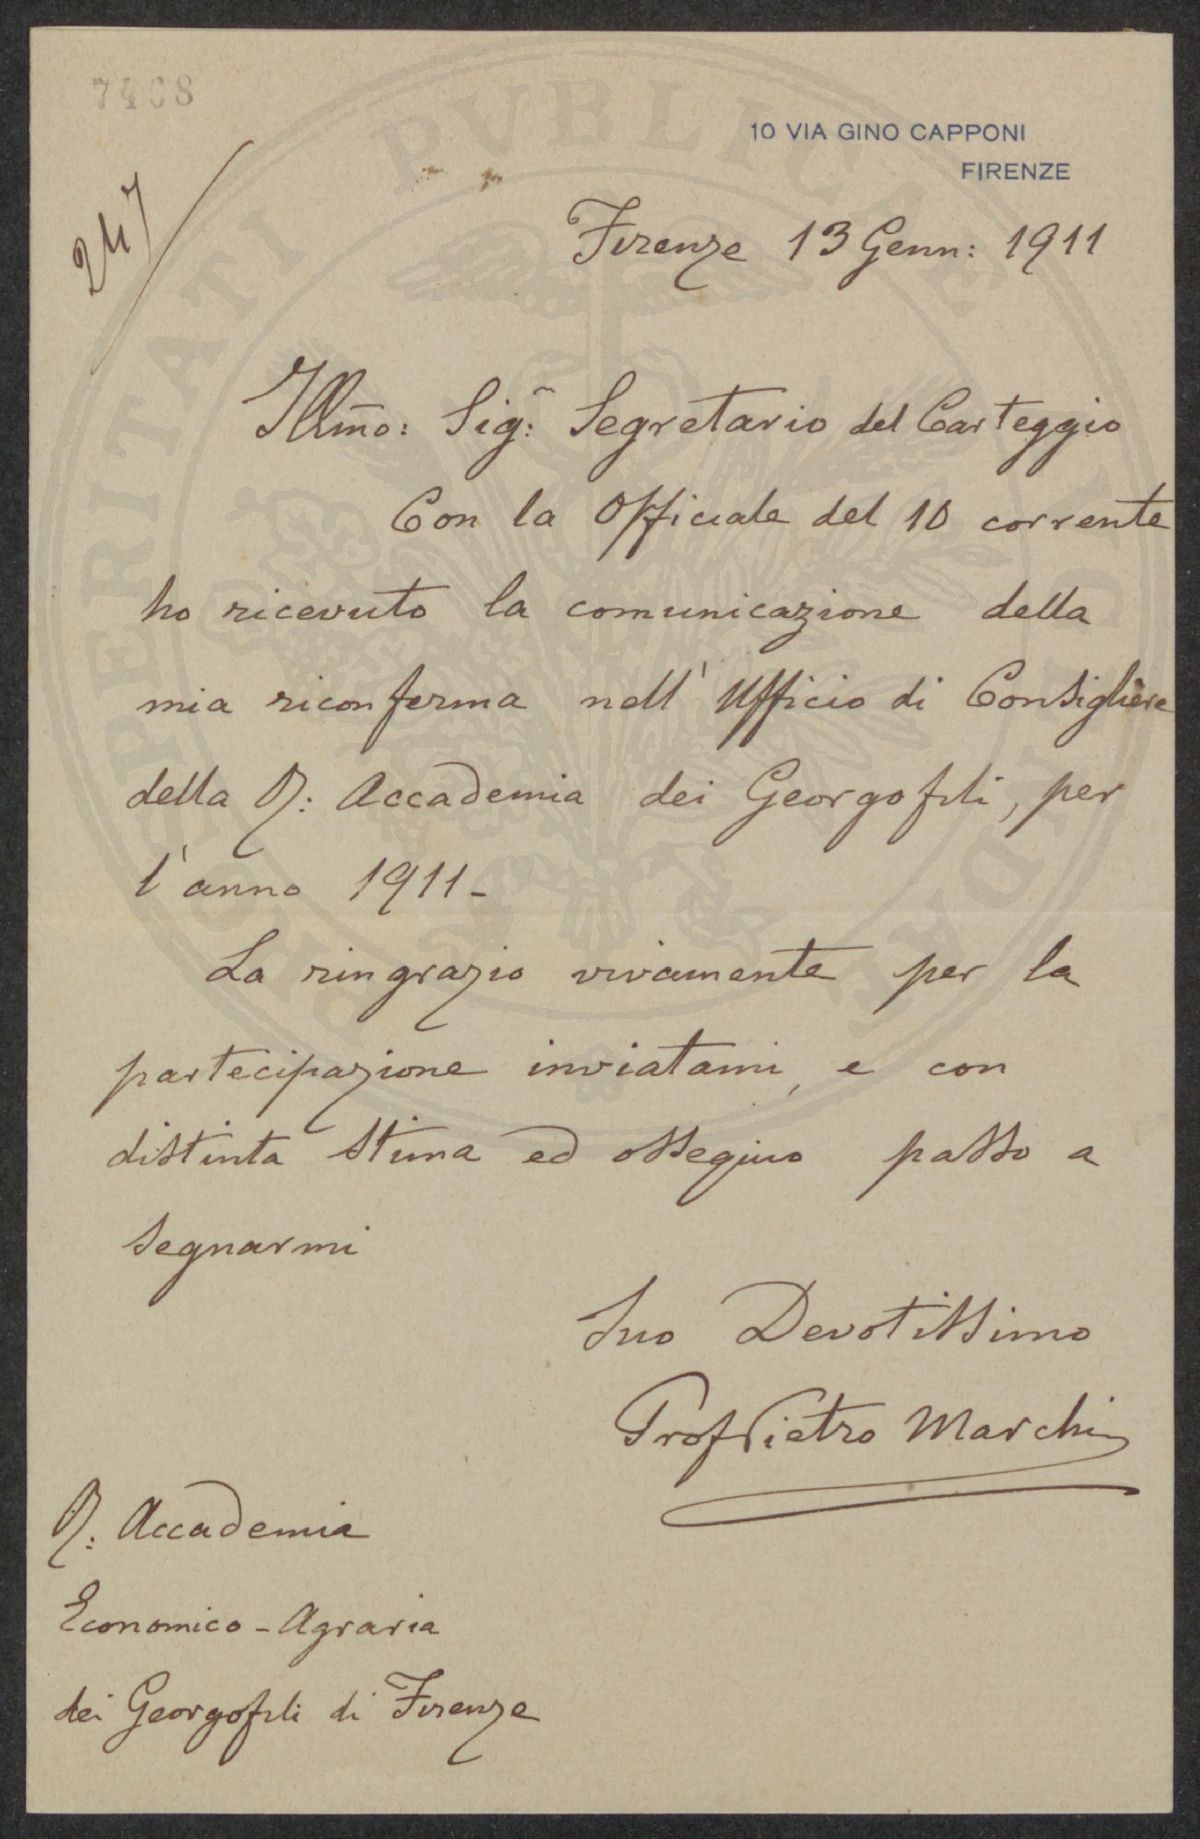 7408
10 VIA GINO CAPPONI
FIRENZE
247
Firenze 13 Genn: 1911
Illm̃o: Sig:r Segretario del Carteggio
Con la Officiale del 10 corrente
ho ricevuto la comunicazione della
mia riconferma nell'Ufficio di Consigliere
della R: Accademia dei Georgofili, per
l'anno 1911-
La ringrazio vivamente per la
partecipazione inviatami, e con
distinta stima ed ossequio passo a
segnarmi
Suo Devotissimo
Prof Pietro Marchi
R: Accademia
Economico-Agraria
dei Georgofili di Firenze
PROSPERITATI PVBLICAE AVGENDAE